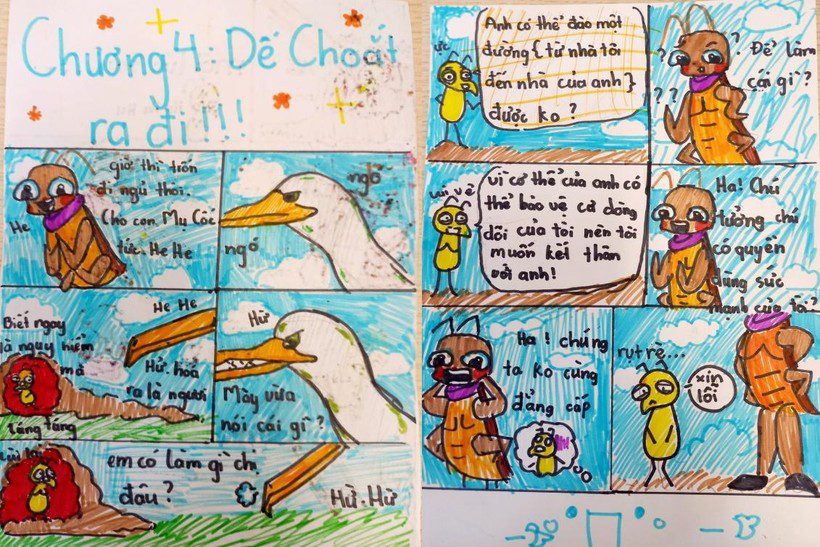 Chương 4: Dế Choắt
ra đi!!!
giờ thì trốn
đi ngủ thôi.
Cho con Mụ Cốc
tức. He He
He
ngó
ngó
He He
Biết ngay
là nguy hiểm
mà
Hừ. hoá
ra là ngươi
lảng tảng
Hừ
Mày vừa
nói cái gì?
em có làm gì chị
đâu?
Hừ. Hừ
ực
Anh có thể đào một
đường {từ nhà tôi
đến nhà của anh}
được ko?
? ? ? ?
Để làm
cái gì?
vui vẻ
Vì cơ thể của anh có
thể bảo vệ cả dòng
dõi của tôi nên tôi
muốn kết thân
với anh!
Ha! Chú
tưởng chú
có quyền
dùng sức
mạnh của tôi?
Ha! chúng
ta ko cùng
đẳng cấp
rụt rè...
xin
lỗi